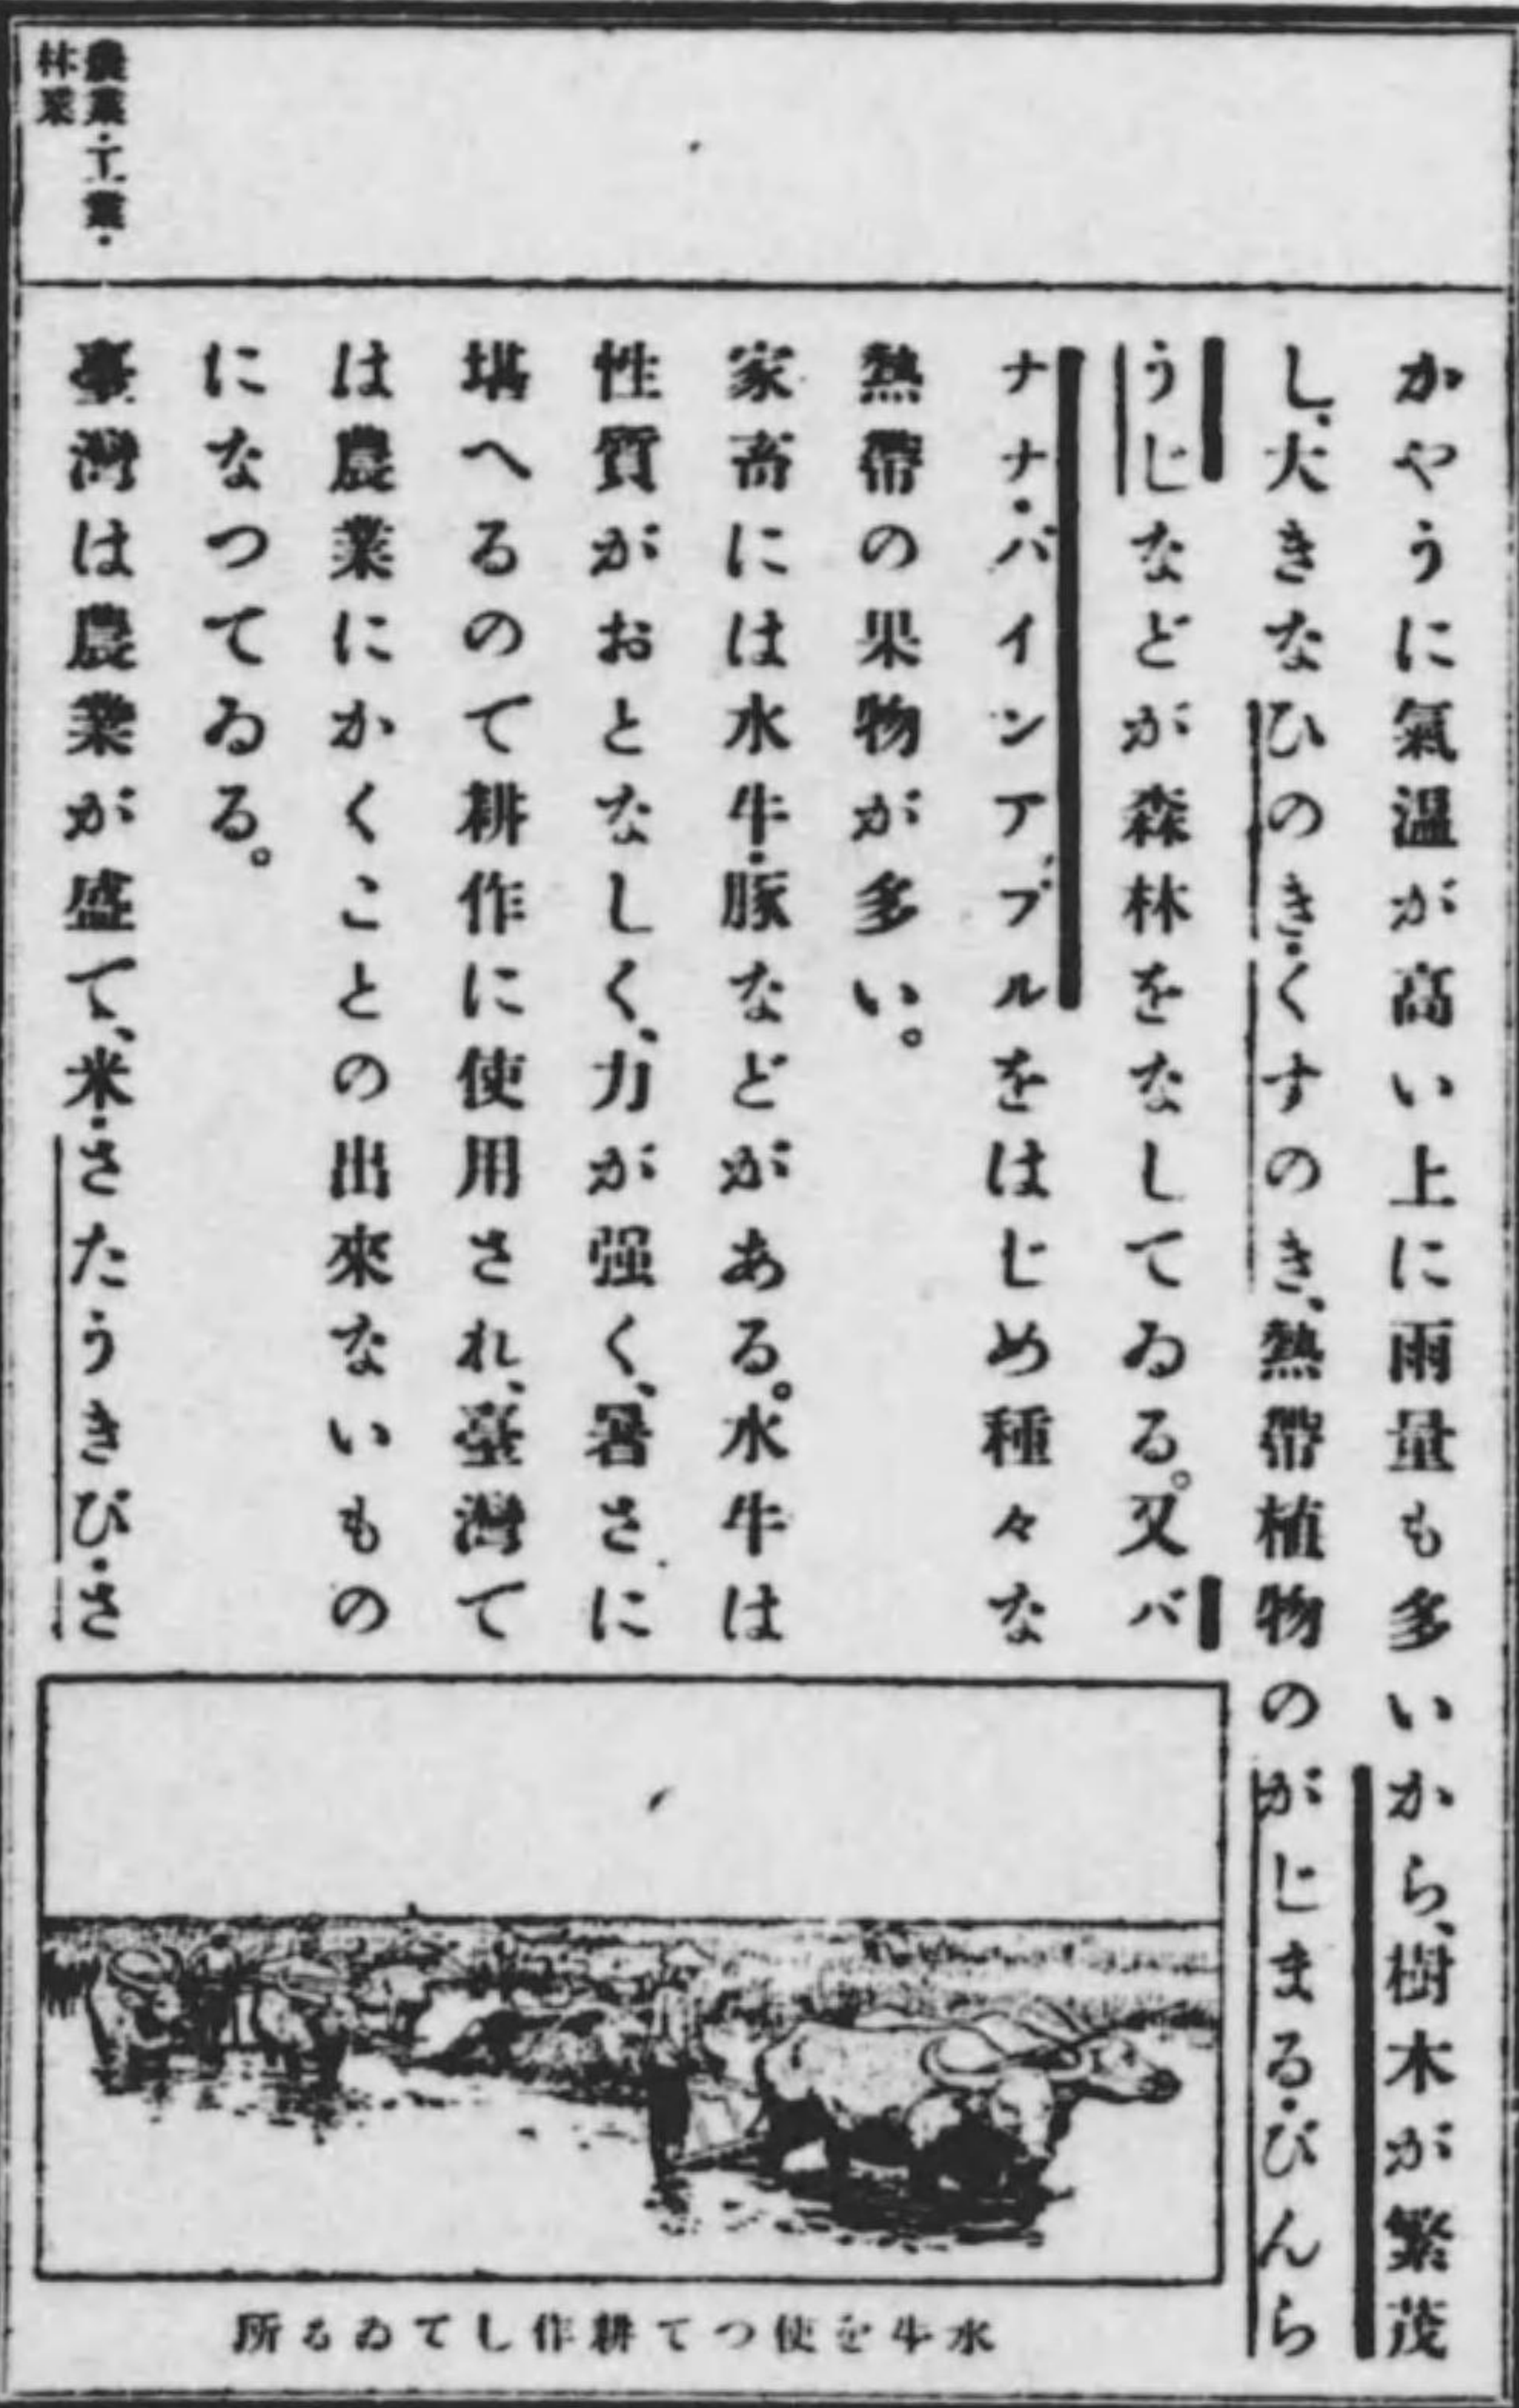 かやうに氣溫が高い上に雨量も多いから、樹木が繁茂
し、大きなひのき・くすのき、熱帶植物のがじまる・びんら
うじなどが森林をなしてゐる。又バ
ナナ・パインアップルをはじめ種々な
熱帶の果物が多い。
家畜には水牛・豚などがある。水牛は
性質がおとなしく、力が强く、暑さに
堪へるので耕作に使用され、臺灣で
は農業にかくことの出來ないもの
になつてゐる。
農業・工業・
林業
臺灣は農業が盛で、米・さたうきび・さ
水牛を使つて耕作してゐる所